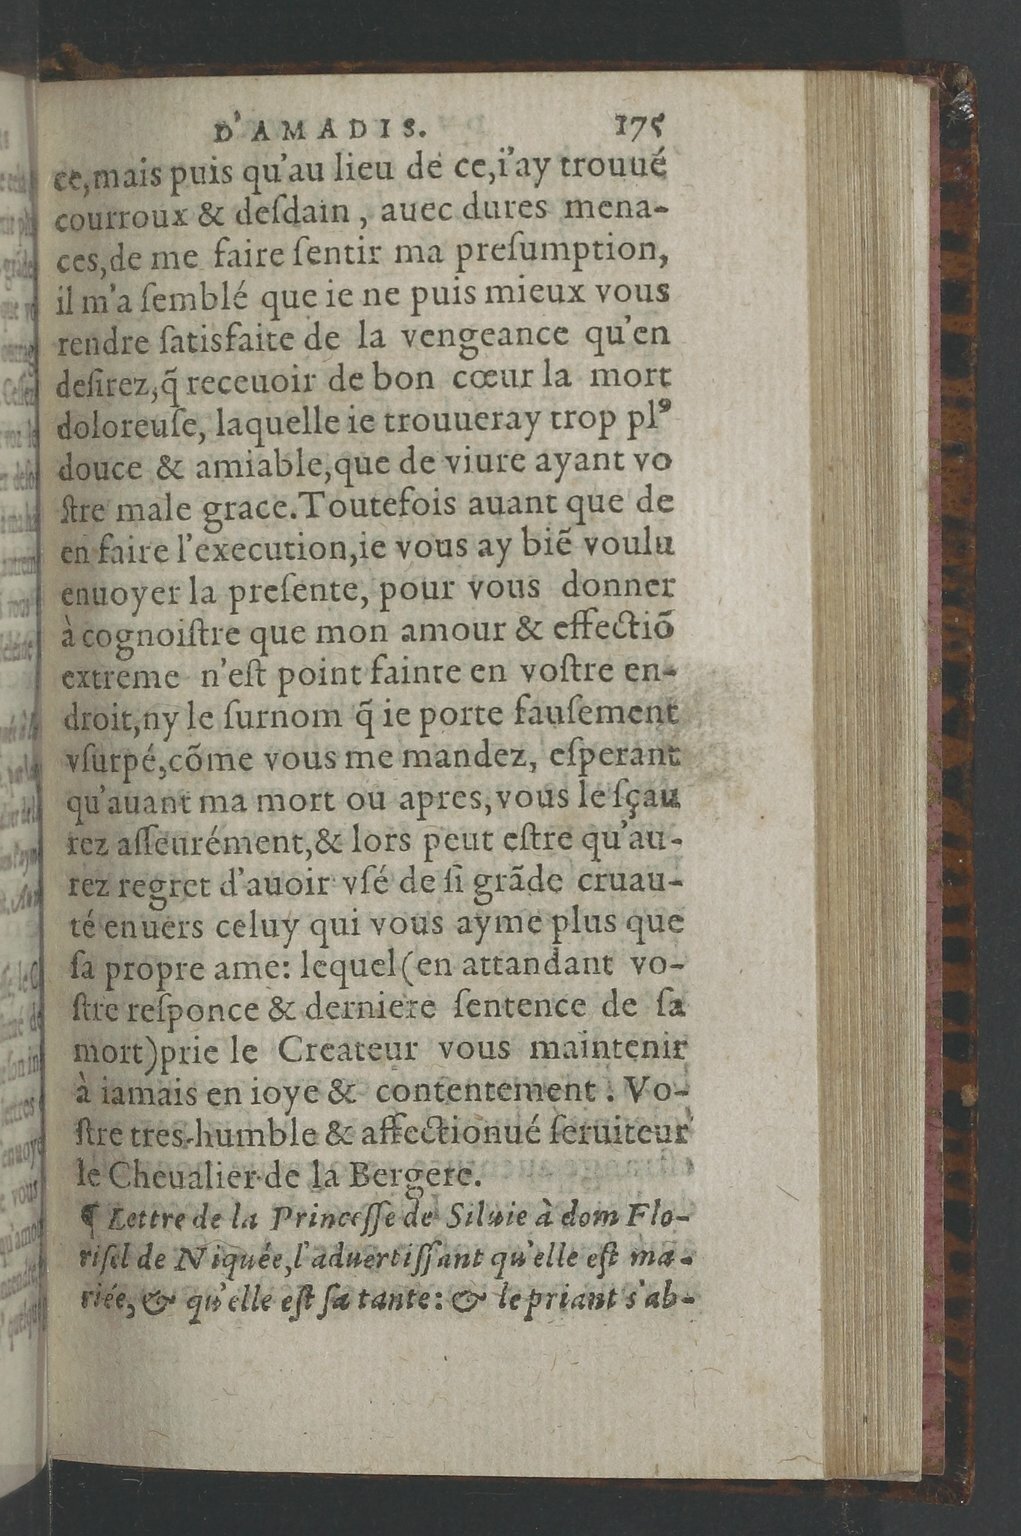 D'AMADIS. 175
ce,mais puis qu'au lieu de ce,i'ay trouué
courroux & deſdain, auec dures mena-
ces,de me faire ſentir ma preſumption,
il m'a ſemblé que ie ne puis mieux vous
rendre ſatisfaite de la vengeance qu'en
deſirez,q̃ receuoir de bon cœur la mort
doloreuſe, laquelle ie trouueray trop plꝰ
douce & amiable,que de viure ayant vo
ſtre male grace.Toutefois auant que de
en faire l'execution,ie vous ay biẽ voulu
enuoyer la preſente, pour vous donner
à cognoiſtre que mon amour & effectiõ
extreme n'eſt point fainte en voſtre en-
droit,ny le ſurnom q̃ ie porte fauſement
vſurpé,cõme vous me mandez, eſperant
qu'auant ma mort ou apres,vous le ſçau
rez aſſeurément,& lors peut eſtre qu'au-
rez regret d'auoir vſé de ſi grãde cruau-
té enuers celuy qui vous ayme plus que
ſa propre ame: lequel(en attandant vo-
ſtre reſponce & derniere ſentence de ſa
mort)prie le Createur vous maintenir
à iamais en ioye & contentement. Vo-
ſtre tres-humble & affectionué ſeruiteur
le Cheualier de la Bergere.
¶ Lettre de la Princeſſe de Siluie à dom Flo-
riſel de Niquée,l'aduertiſſant qu'elle eſt ma-
riée, & qu'elle eſt ſa tante: & le priant s'ab-